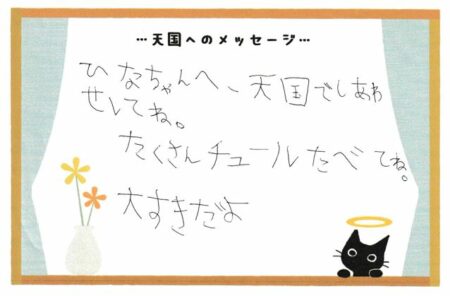 …天国へのメッセージ…
ひなちゃんへ、天国でしあわ
せしてね。
たくさんチュールたべてね。
大すきだよ